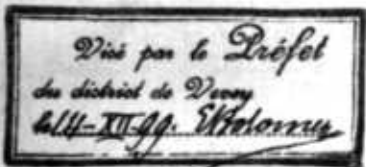 Visé par le Préfet
du district de Vevey
le 14-XII-99.